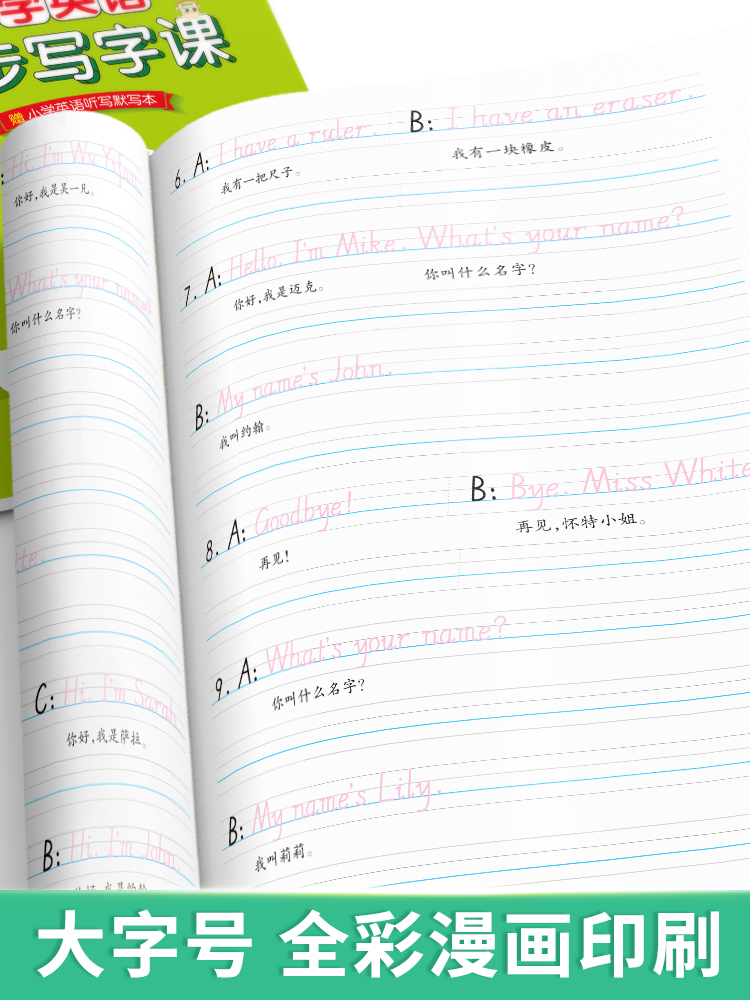 学英语
步写字课
赠 小学英语听写默写本
Hi, I'm Wu Yifan
你好,我是吴一凡。
What's your name?
你叫什么名字?
ite.
C: Hi, I'm Sarah.
你好,我是萨拉。
B: Hi, I'm John.
6. A: I have a ruler. B: I have an eraser.
我有一把尺子。 我有一块橡皮。
7. A: Hello, I'm Mike. What's your name?
你好,我是迈克。 你叫什么名字?
B: My name's John.
我叫约翰。
8. A: Goodbye! B: Bye, Miss White
再见! 再见,怀特小姐。
9. A: What's your name?
你叫什么名字?
B: My name's Lily.
我叫莉莉。
大字号 全彩漫画印刷